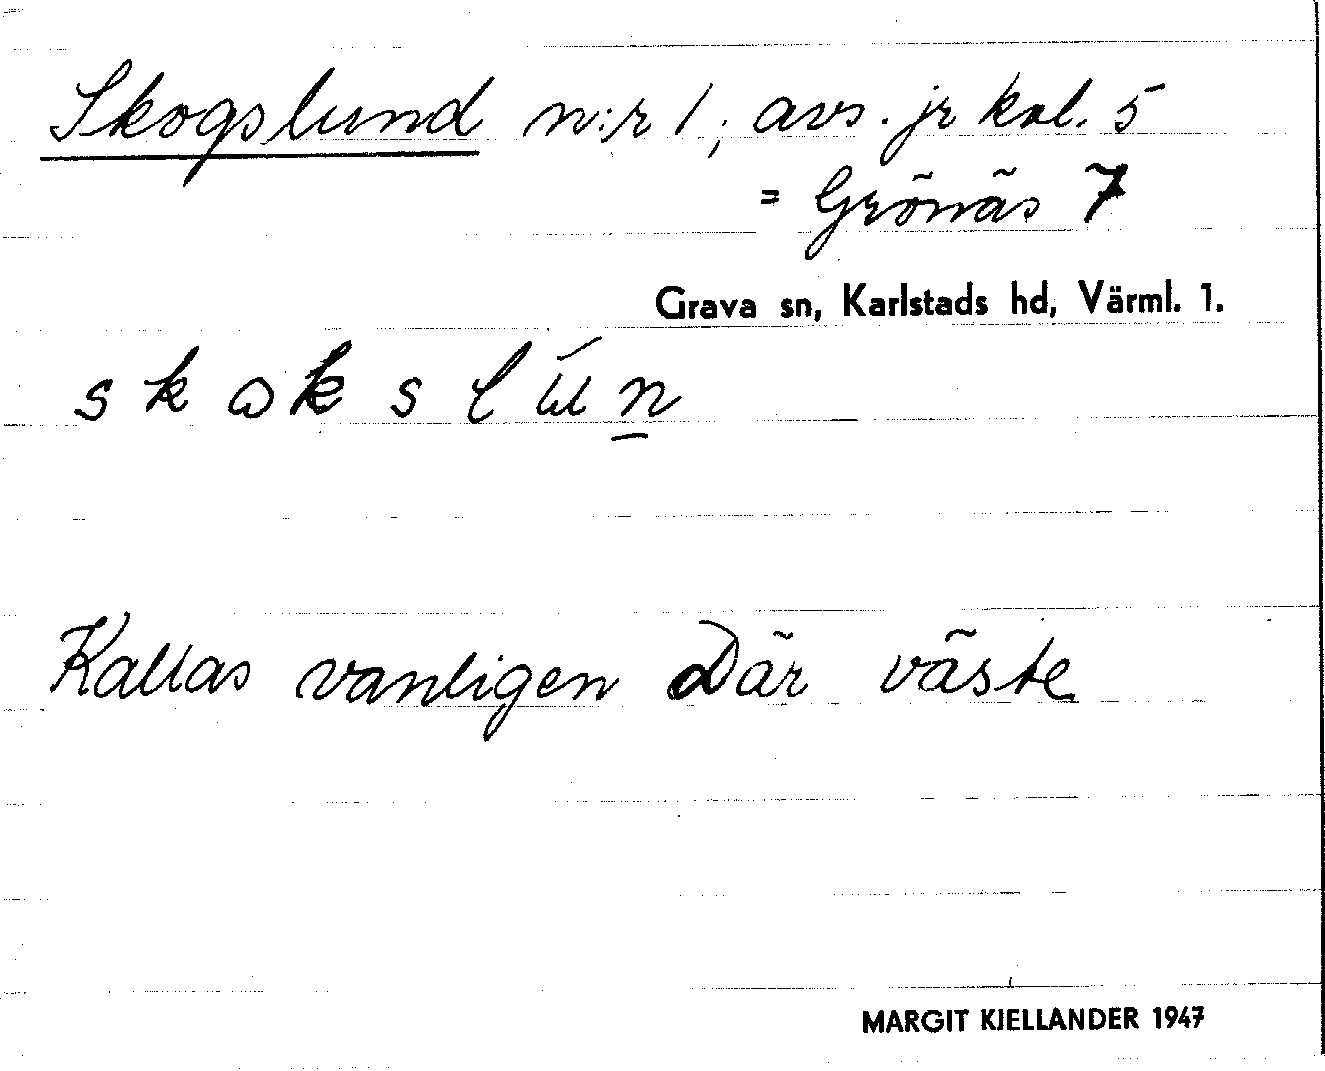 Skogslund n:r 1, avs. jr kol. 5
= Grönäs 7
Grava sn, Karlstads hd, Värml. 1.
skokslún̲
Kallas vanligen Där väste
MARGIT KJELLANDER 1947